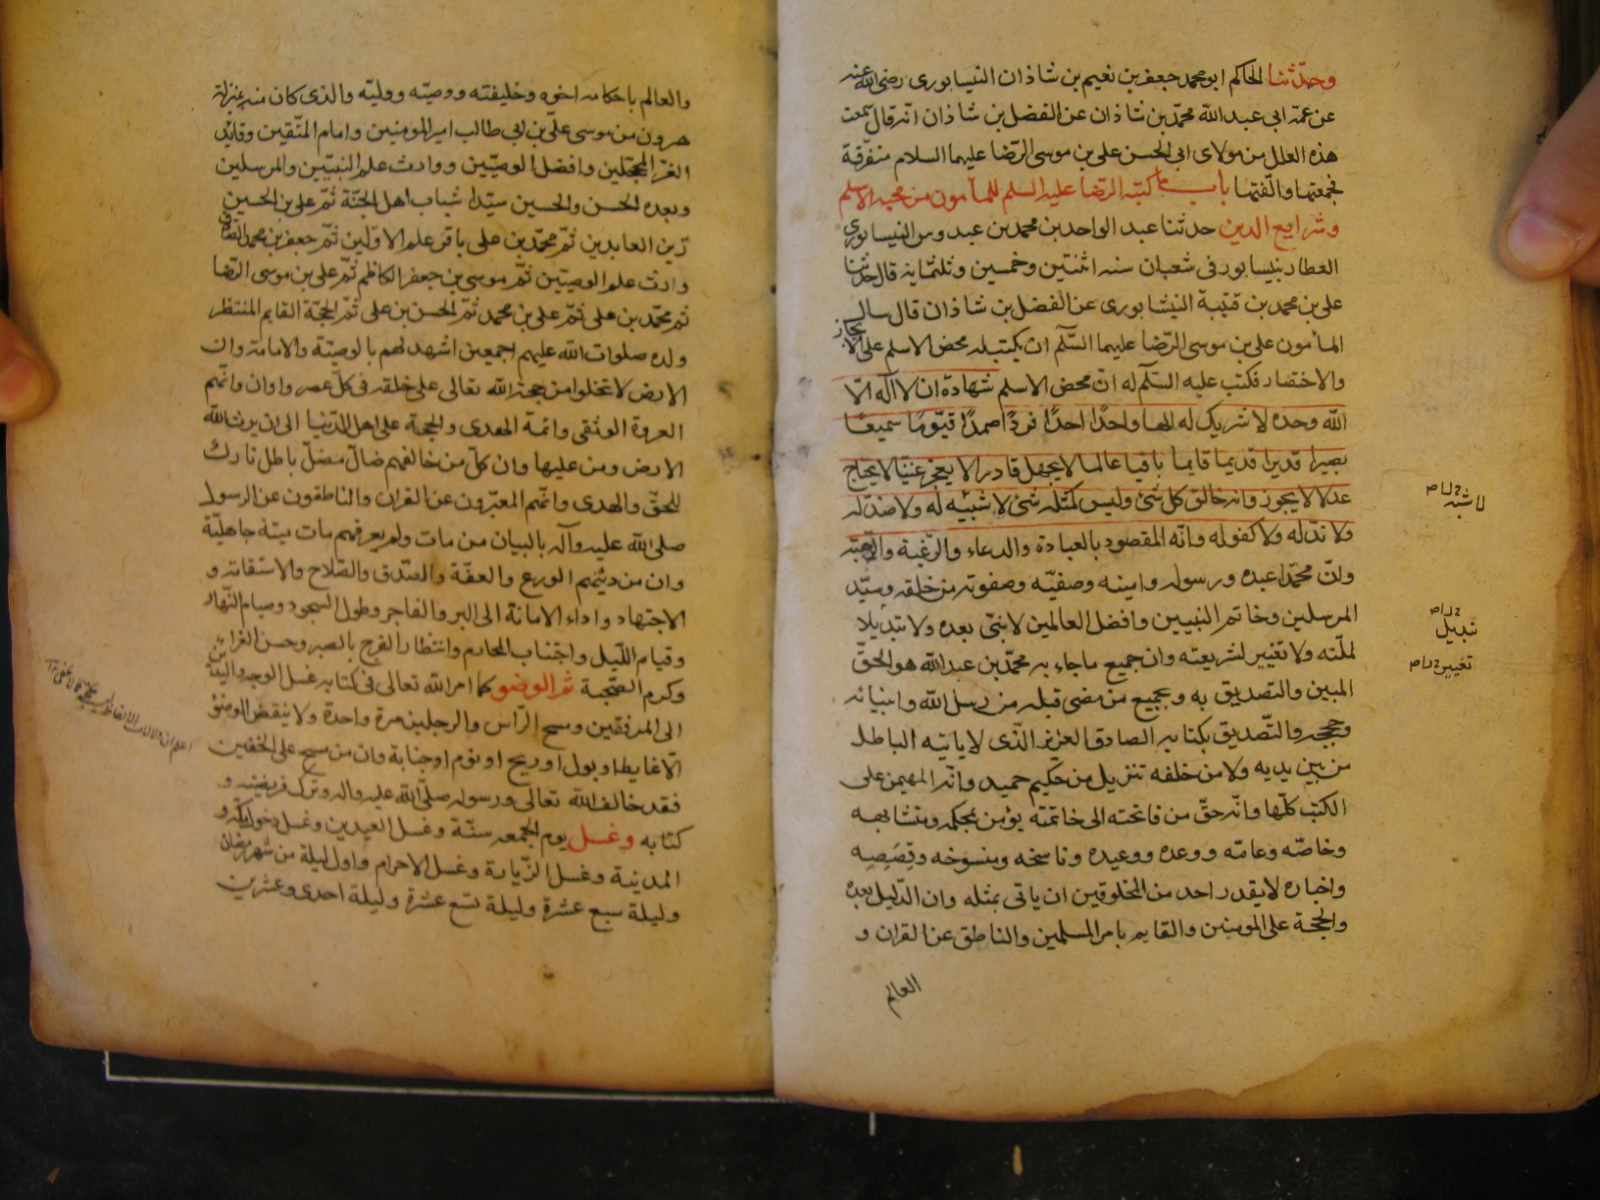 وحدثنا الحاكم ابو محمد جعفر بن نعيم بن شاذان النيسابورى رضى الله عنه
عن عمه ابى عبد الله محمد بن شاذان عن الفضل بن شاذان انه قال سمعت
هذه العلل من مولاى ابى الحسن على بن موسى الرّضا عليهما السلام متفرقة
فجمعتها والّفتها باب ما كتبه الرضا عليه السلم للمأمون من محض الاسلم
وشرايع الدين حدثنا عبد الواحد بن محمد بن عبدوس النيسابورى
العطار بنيسابور فى شعبان سنه اثنتين وخمسين وثلثمايه قال حدثنا
على بن محمد بن قتيبة النيشابورى عن الفضل بن شاذان قال سال
المأمون على بن موسى الرّضا عليهما السّلم ان يكتب له محض الاسلم على الايجاز
والاختصار فكتب عليه السّلم له انّ محض الاسلم شهادة ان لا اله الا
الله وحده لا شريك له الها واحدًا احدًا فردًا صمدًا قيّومًا سميعًا
بصيرا قديرا قديما قايما باقيا عالما لا يجهل قادرا لا يعجز غنيّا لا يحتاج
عدلا لا يجور وانه خالق كل شئ وليس كمثله شئ لا شبيه له ولا ضدّ له
ولا ندّ له ولا كفو له وانّه المقصود بالعبادة والدعاء والرّغبة والرّهبة
وانّ محمّدا عبده ورسوله وامينه وصفيّه وصفوته من خلقه وسيّد
المرسلين وخاتم النبيين وافضل العالمين لا نبىّ بعده ولا تبديلًا
لملّته ولا تغيير لشريعته وان جميع ما جاء به محمّد بن عبد الله هو الحقّ
المبين والتصديق به وبجميع من مضى قبله من رسل الله وانبيائه
وحججه والتّصديق بكتابه الصادق العزيز الّذى لا ياتيه الباطل
من بين يديه ولا من خلفه تنزيل من حكيم حميد وانّه المهيمن على
الكتب كلّها وانّه حقّ من فاتحته الى خاتمته يؤمن بمحكمه ومتشابهه
وخاصّه وعامّه ووعده ووعيده وناسخه ومنسوخه وقصصه
واخباره لا يقدر احد من المخلوقين ان ياتى بمثله وان الدّليل بعده
والحجة على المومنين والقايم بامر المسلمين والناطق عن القران و
العالم
لا شبه
تبديل
تغيير
والعالم باحكامه اخوه وخليفته ووصيّه ووليّه والذى كان منه بمنزلة
هرون من موسى على بن ابى طالب امير المومنين وامام المتّقين وقايد
الغرّ المحجّلين وافضل الوصيّين ووارث علم النبيّين والمرسلين
وبعده الحسن والحسين سيّدا شباب اهل الجنّة ثمّ على بن الحسين
زين العابدين ثمّ محمّد بن على باقر علم الاوّلين ثمّ جعفر بن محمد الصادق
وارث علم الوصيّين ثمّ موسى بن جعفر الكاظم ثمّ على بن موسى الرّضا
ثم محمّد بن على ثمّ على بن محمد ثمّ الحسن بن على ثمّ الحجّة القايم المنتظر
ولده صلوات الله عليهم اجمعين اشهد لهم بالوصيّة والامامة وان
الارض لا تخلوا من حجة الله تعالى على خلقه فى كلّ عصر واوان وانّهم
العروة الوثقى وائمة الهدى والحجة على اهل الدّنيا الى ان يرث الله
الارض ومن عليها وان كلّ من خالفهم ضالّ مضلّ باطل تارك
للحقّ والهدى وانّهم المعبّرون عن القران والناطقون عن الرسول
صلى الله عليه وآله بالبيان من مات ولم يعرفهم مات ميتة جاهليّة
وان من دينهم الورع والعفّة والصّدق والصّلاح والاستقامة و
الاجتهاد واداء الامانة الى البر والفاجر وطول السجود وصيام النّهار
وقيام اللّيل واجتناب المحارم وانتظار الفرج بالصبر وحسن العزاء
وكرم الصّحبة ثم الوضو كما امر الله تعالى فى كتابه غسل الوجه واليدين
الى المرفقين ومسح الرّاس والرجلين مرة واحدة ولا ينقض الوضوء
الّا غايط او بول او ريح او نوم او جنابة وان من مسح على الخفين
فقد خالف الله تعالى ورسوله صلّى الله عليه واله وترك فريضته و
كتابه وغسل يوم الجمعه سنّة وغسل العيدين وغسل دخول مكّة و
المدينة وغسل الزّيارة وغسل الاحرام واول ليلة من شهر رمضان
وليلة سبع عشرة وليلة تسع عشرة وليلة احدى وعشرين